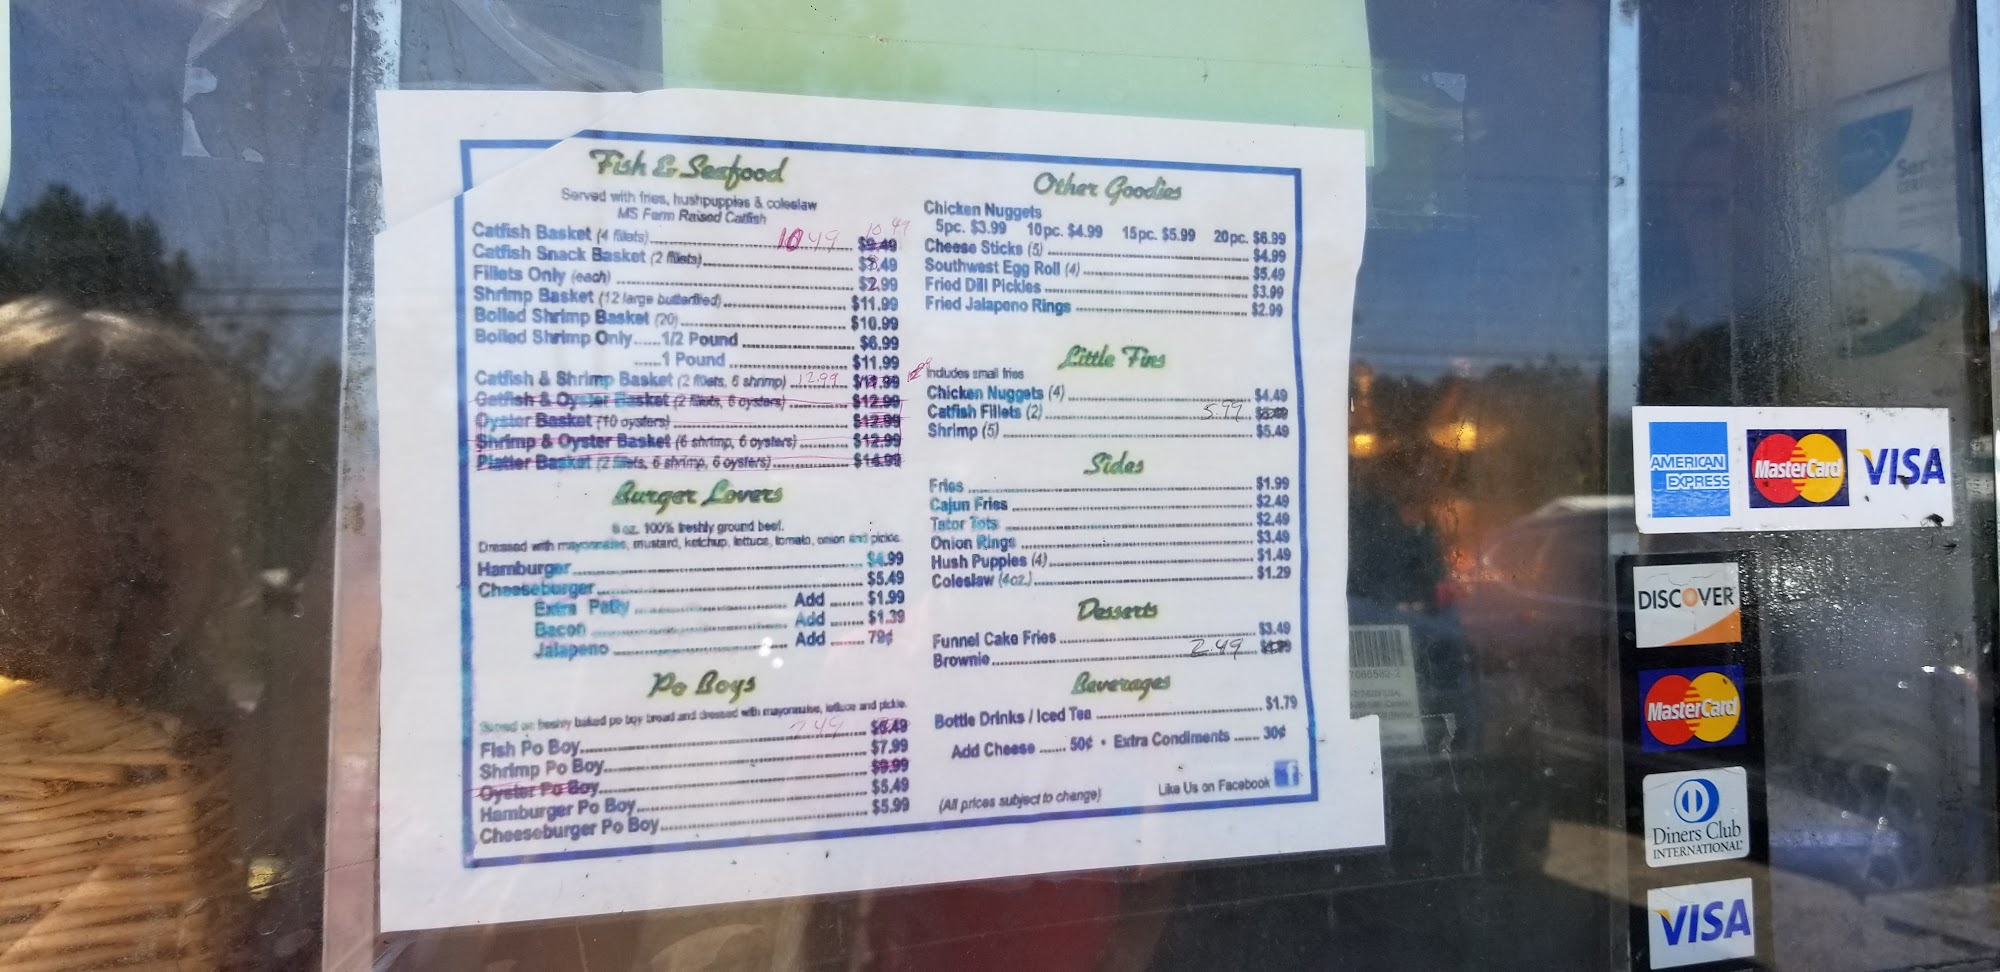 Fish & Seafood
Served with fries, hushpuppies & coleslaw
MS Farm Raised Catfish
Catfish Basket (4 fillets) 10.49 $9.49 10.49
Catfish Snack Basket (2 fillets) $8.49
Fillets Only (each) $2.99
Shrimp Basket (12 large butterflied) $11.99
Boiled Shrimp Basket (20) $10.99
Boiled Shrimp Only......1/2 Pound $6.99
......1 Pound $11.99
Catfish & Shrimp Basket (2 fillets, 6 shrimp) 12.99
Catfish & Oyster Basket (2 fillets, 6 oysters) $12.99
Oyster Basket (10 oysters) $12.99
Shrimp & Oyster Basket (6 shrimp, 6 oysters) $12.99
Platter Basket (2 fillets, 6 shrimp, 6 oysters) $14.99
Burger Lovers
oz. 100% freshly ground beef.
Dressed with mayonnaise, mustard, ketchup, lettuce, tomato, onion and pickle.
Hamburger $4.99
Cheeseburger $5.49
Extra Patty Add $1.99
Bacon Add $1.39
Jalapeno Add 79¢
Po Boys
Served on freshly baked po boy bread and dressed with mayonnaise, lettuce and pickle.
Fish Po Boy 7.49 $6.49
Shrimp Po Boy $7.99
Oyster Po Boy $9.99
Hamburger Po Boy $5.49
Cheeseburger Po Boy $5.99
Other Goodies
Chicken Nuggets
5pc. $3.99 10pc. $4.99 15pc. $5.99 20pc. $6.99
Cheese Sticks (5) $4.99
Southwest Egg Roll (4) $5.49
Fried Dill Pickles $3.99
Fried Jalapeno Rings $2.99
Little Fins
Includes small fries
Chicken Nuggets (4) $4.49
Catfish Fillets (2) 5.99
Shrimp (5) $5.49
Sides
Fries $1.99
Cajun Fries $2.49
Tator Tots $2.49
Onion Rings $3.49
Hush Puppies (4) $1.49
Coleslaw (4oz.) $1.29
Desserts
Funnel Cake Fries $3.49
Brownie 2.49
Beverages
Bottle Drinks / Iced Tea $1.79
Add Cheese ...... 50¢ • Extra Condiments ...... 30¢
Like Us on Facebook f
(All prices subject to change)
AMERICAN EXPRESS MasterCard VISA
DISCOVER
MasterCard
Diners Club
INTERNATIONAL
VISA